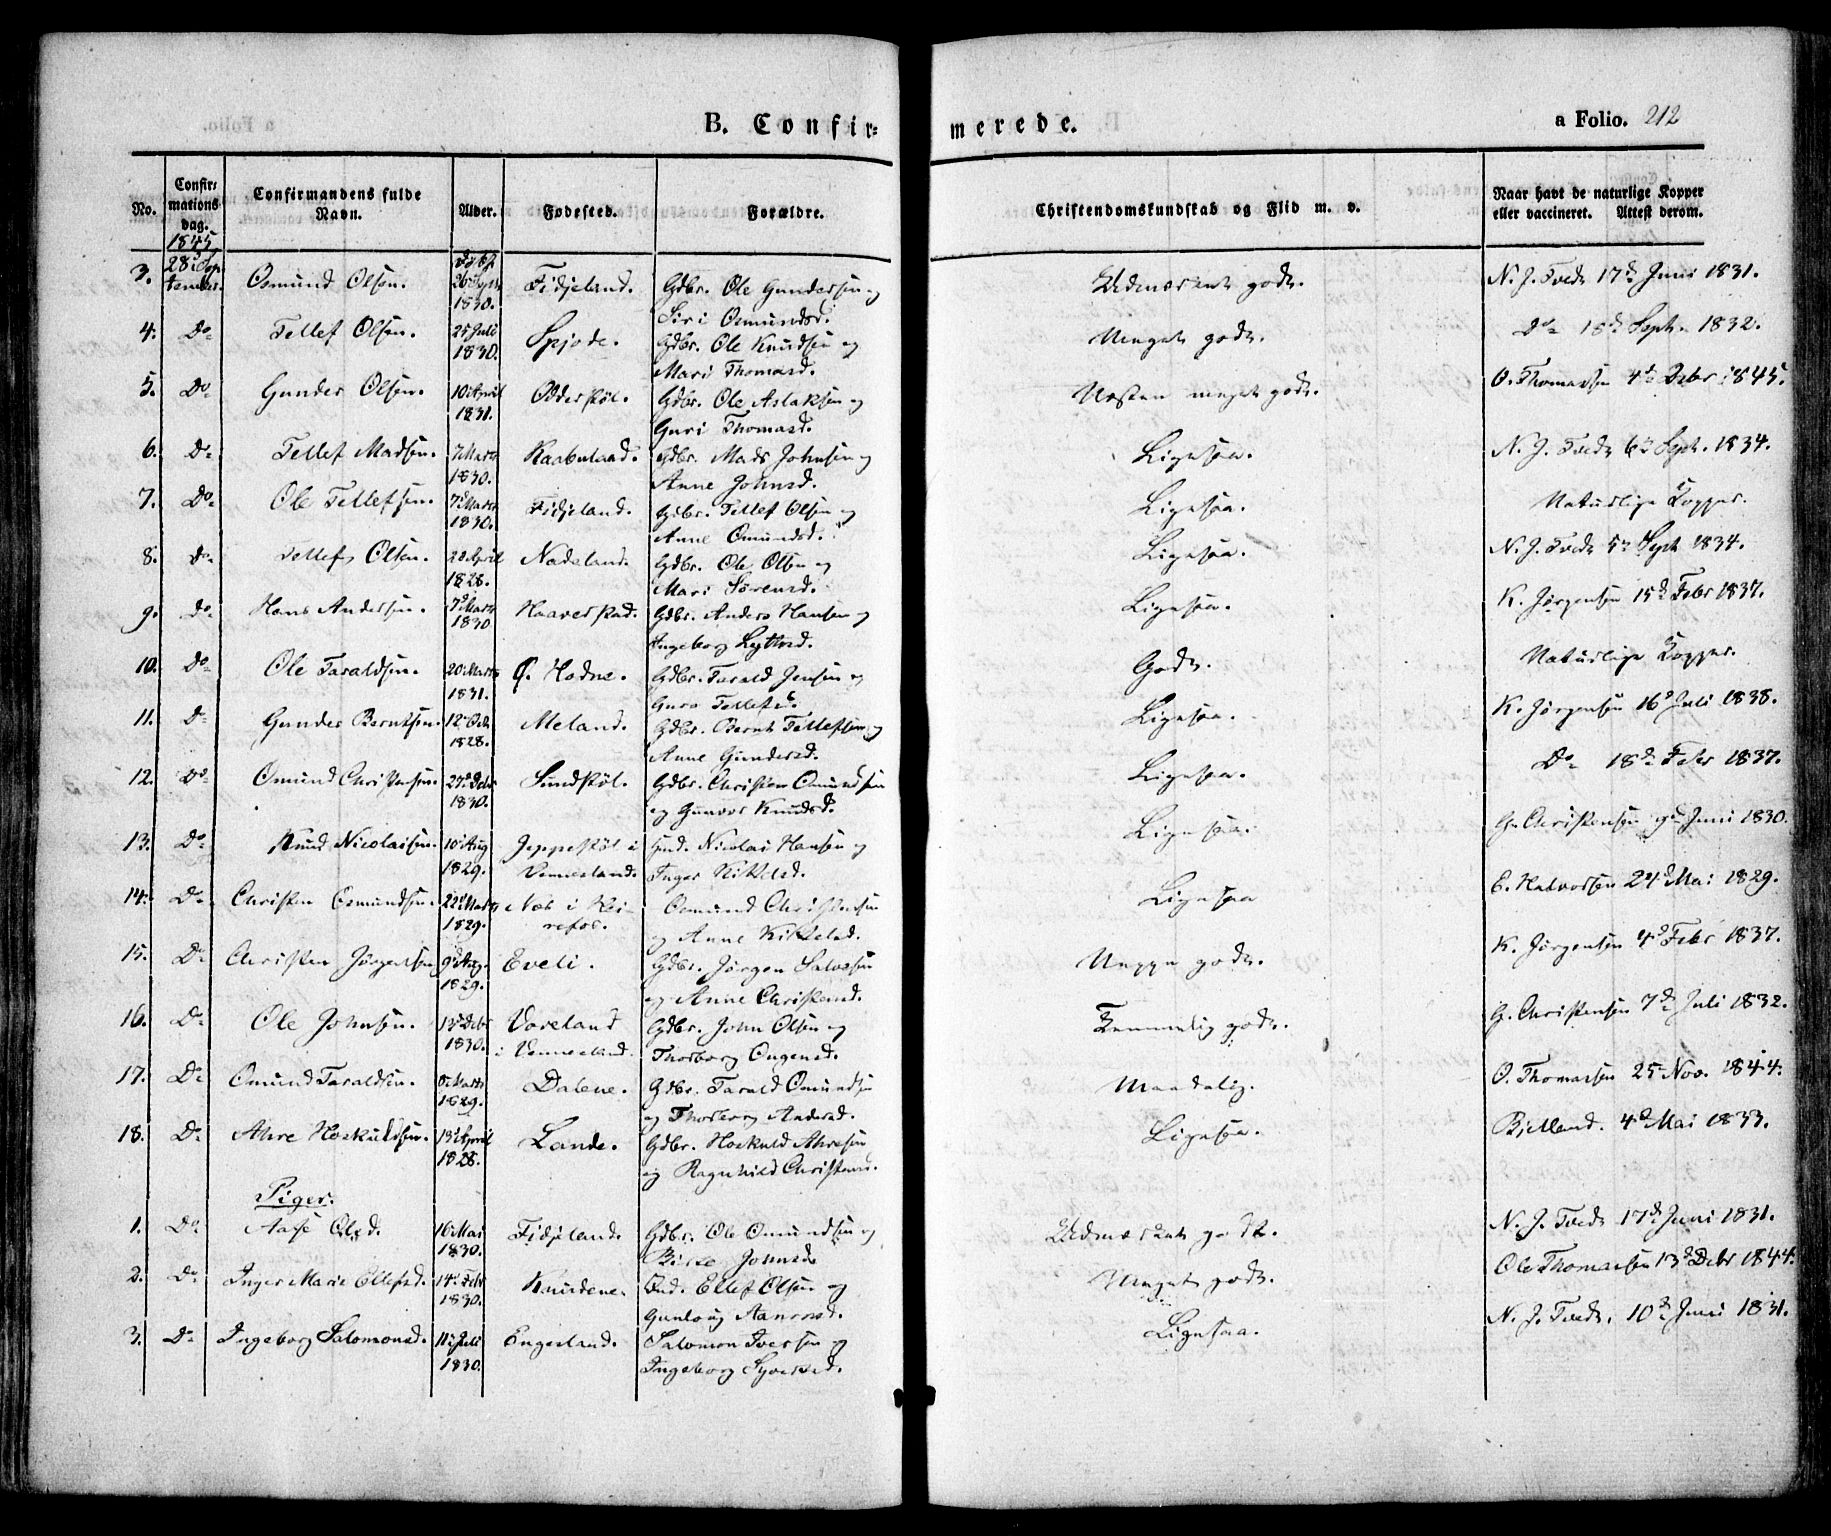 B. Confir=
merede.
a Folio. 212
No.
Confir=
mations
dag.
1845
Confirmandens fulde
Navn.
Alder.
Fødested.
Forældre.
Christendomskundskab og Flid m. v.
Naar havt de naturlige Kopper
eller vaccineret. Attest derom.
3. 28 Sep
tember. Osmund Olsen. 1830. Fidjeland. Gdbr. Ole Gundersen og
Siri Osmundsd. Udmærket godt. N. J. Tvedt 17de Juni 1831.
4. Do Tellef Olsen. 25 Juli
1830. Spjode. Gdbr. Ole Knudsen og
Mari Thomasd. Meget godt. Do 18de Sept. 1832.
5. Do Gunder Olsen. 10 April
1831. Odderskøl. Gdbr. Ole Aslaksen og
Guri Thomasd. Næsten meget godt. O. Thomassen 4de Debr 1845.
6. Do Tellef Madsen. 7 Marts
1830. Gdbr. Mads Johnsen og
Anne Johnsd. Ligesaa. N. J. Tvedt 6te Sept. 1834.
7. Do Ole Tellefsen. 7 Marts
1830. Fidjeland. Gdbr. Tellef Olsen og
Anne Omundsd. Ligesaa. Naturlige Kopper.
8. Do Tellef Olsen. 20 April
1828. Nadeland. Gdbr. Ole Olsen og
Mari Sørensd. Ligesaa. N. J. Tvedt 5te Sept 1834.
9. Do Hans Andersen. 7 Marts
1830 Haaverstad. Gdbr. Anders Hansen og
Ingeborg Ligesaa. K. Jørgensen 15de Febr 1837.
10. Do Ole Taraldsen. 20 Marts
1831. Ø. Hodne. Gdbr. Tarald Jensen og
Guro Tellefsd. Godt. Naturlige Kopper.
11. Do Gunder Berntsen. 12 Octr
1828. Meland. Gdbr. Bernt Tellefsen og
Anne Gundersd. Ligesaa. K. Jørgensen 16de Juli 1838.
12. Do Osmund Christensen. 27 Debr
1830. Sundskøl. Gdbr. Christen Omundsen
og Gunvor Knudsd. Ligesaa. Do 18de Febr 1837.
13. Do Knud Nicolaisen. 10 Aug
1829. Jeppestøl i
Vennesland. Nicolai Hansen og
Inger Kittelsd. Ligesaa. G. Christensen 9de Juni 1830.
14. Do Christen Osmundsen. 22 Marts
1829. Næs i Rei-
refos. Osmund Christensen
og Anne Kittelsd. Ligesaa E. Halvorsen 24de Mai 1829.
15. Do Christen Jørgensen 9 Aug.
1829. Eveli. Gdbr. Jørgen Salvesen
og Anne Christensd. Meget godt. K. Jørgensen 4de Febr 1837.
16. Do Ole Johnsen. 15 Debr
1830. Voreland
i Venneland. Gdbr. John Olsen og
Thorborg Ougensd. Temmelig godt. G. Christensen 7de Juli 1832.
17. Do Omund Taraldsen. 8 Marts
1829. Dalene. Gdbr. Tarald Omundsen
og Thorborg Andersd. Maadelig. O. Thomassen 25 Nov. 1844.
18. Do Ahre Hoskuldsen. 13 April
1828. Lande. Gdbr. Hoskuld Ahresen
og Ragnhild Christensd. Ligesaa. Bjelland. 4de Mai 1833.
Piger.
1. Do Aase Olsd. 16 Mai
1830. Fidjeland. Gdbr. Ole Omundsen og
Johnsd. Udmærket godt. N. J. Tvedt 17de Juni 1831.
2. Do Inger Marie Ellefsd. 14 Febr
1830. Knudene. Ellef Olsen og
Gunloug Aanonsd. Meget godt. Ole Thomassen 13de Debr 1844.
3. Do Ingeborg Salomonsd. 11 Juli
1830. Engesland. Salomon Iversen og
Ingeborg Ligesaa. N. J. Tvedt, 10de Juni 1831.